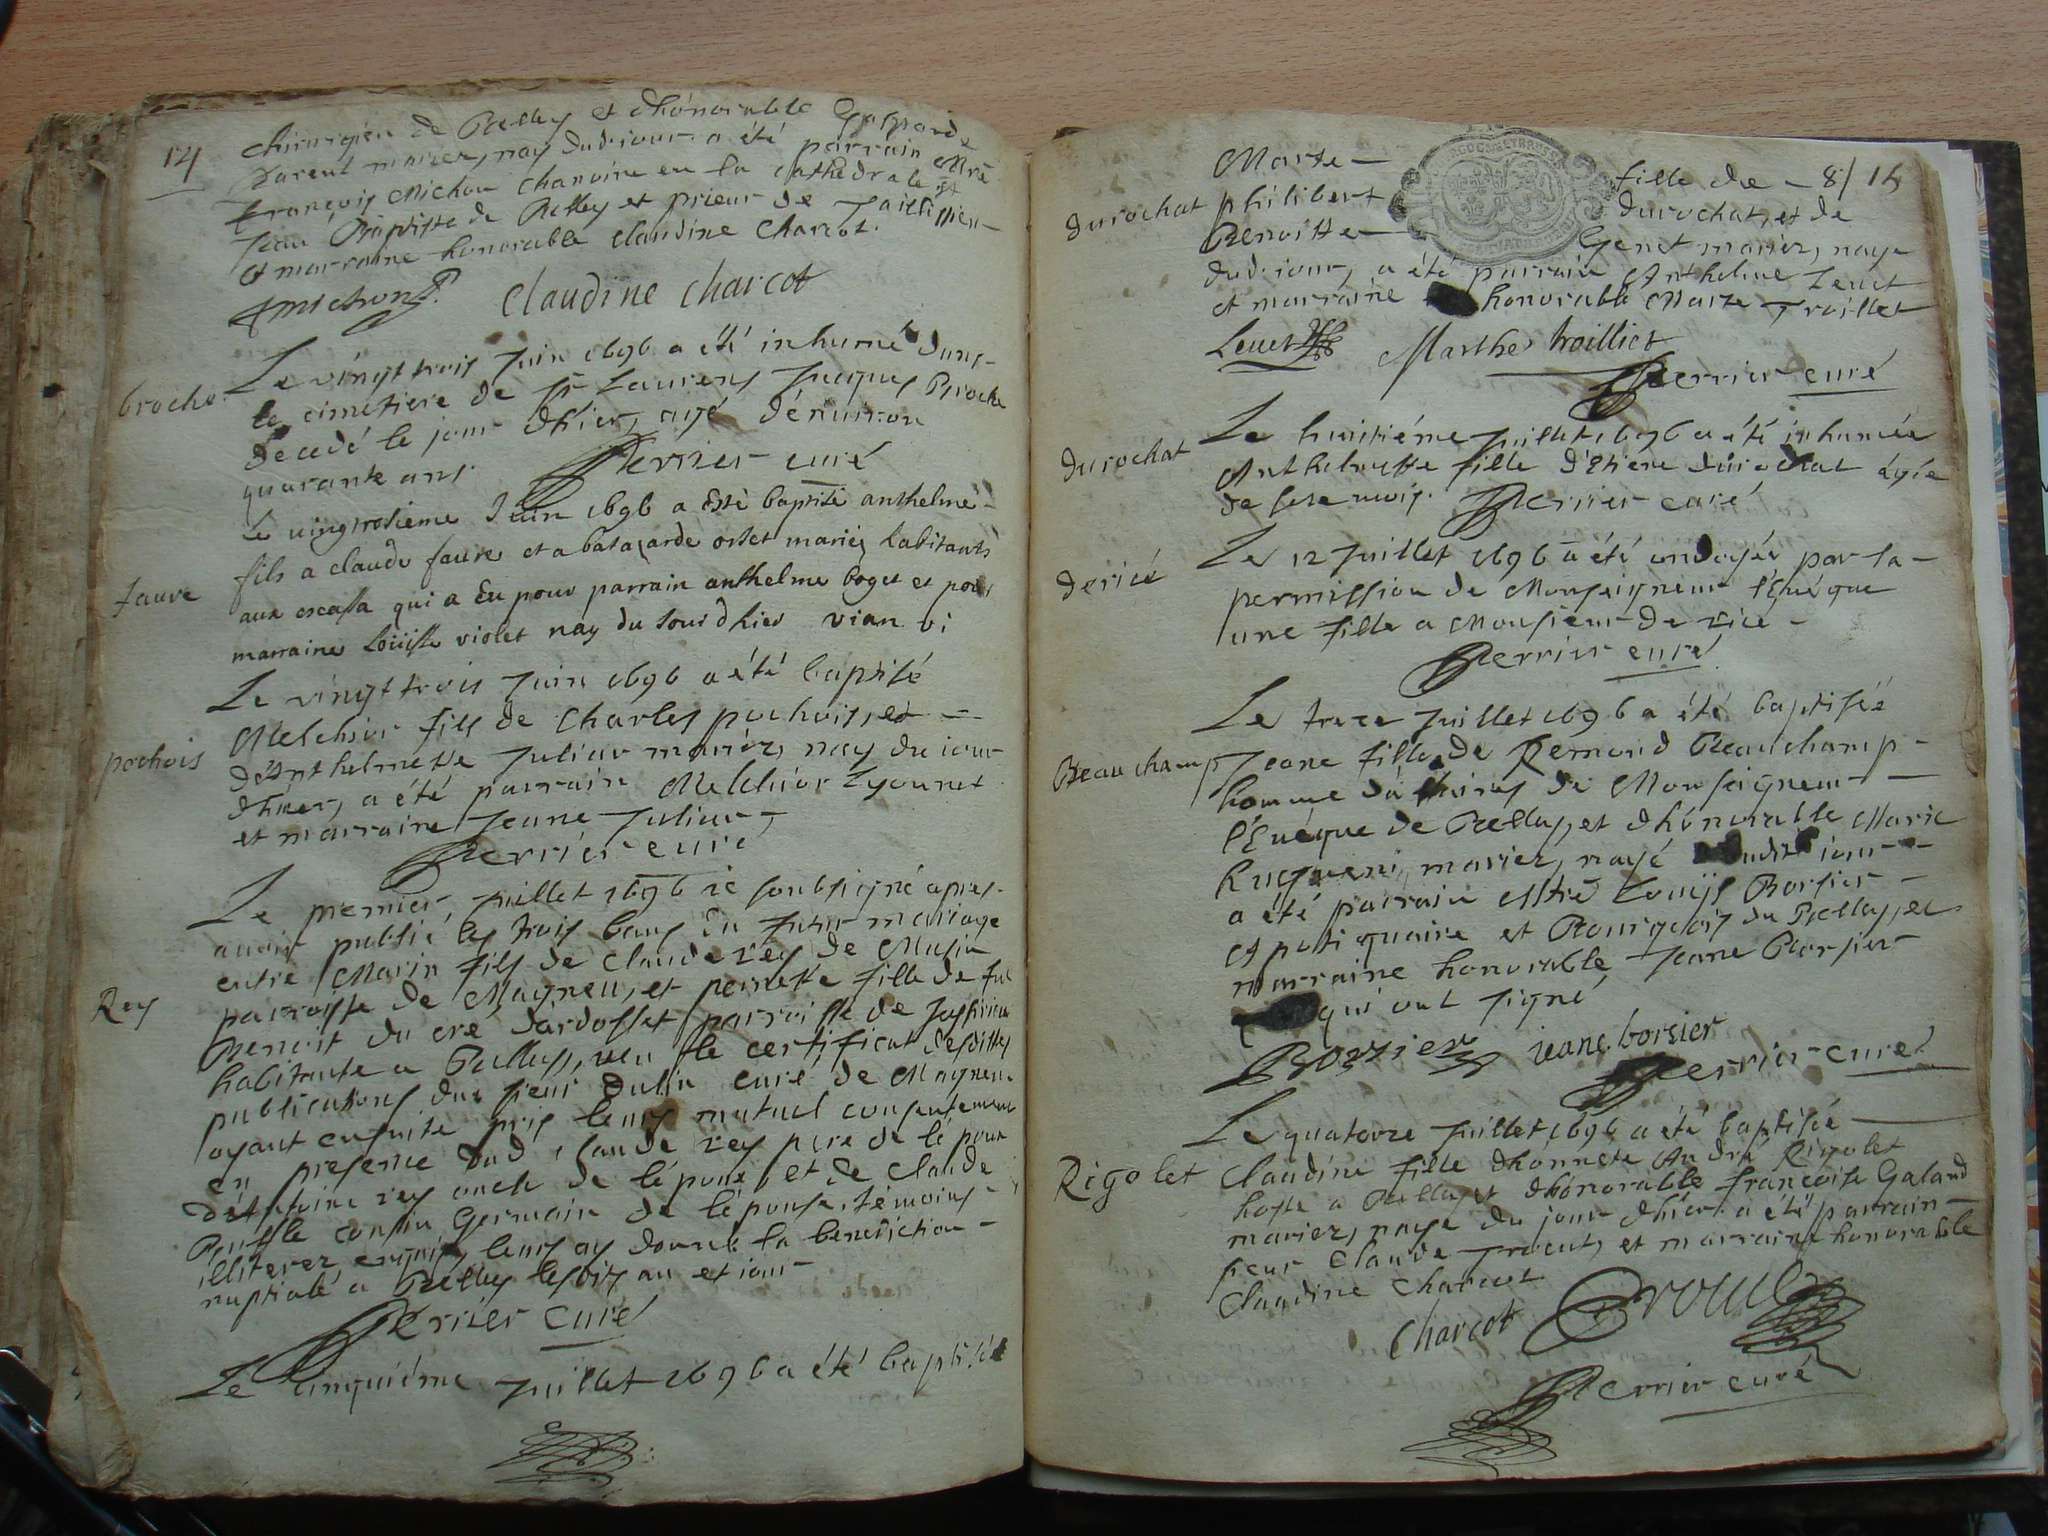 14
chirurgien de Belley et dhonorable Gasparde
parent mariez, nay dud. jour. a été parrain Mre
françois Michon chanoine en la cathedrale St
Jean Baptiste de Belley et prieur de
et marraine honorable claudine charcot.
michon Claudine charcot
brocho
Le vingt trois Juin 1696 a été inhumé dans
le cimetiere de St Laurens Jacques Broche
décedé le jour dhier, agé dénuiron
quarante ans. Perrier curé
fauve
Le vingtroisieme Juin 1696 a esté baptisé anthelme
fils a claude faure et a balazarde orset mariéz habitants
aux escassa qui a Eu pour parrain anthelme boget et pour
marraine Loüiße violet nay du jour dhier vian vi
pochois
Le vingt trois Juin 1696 a été baptisé
Melchior fils de Charles pochois, et
d'Anthelmette Juliar mariéz, nay du jour
dhier, a été parrain Melchior Lyonnet
et marraine Jeane Juliar
Perrier curé
Rey
Le premier Juillet 1696 ie soubsigné apres
auoir publié les trois bans du futur mariage
entre Marin fils de Claude rey de Musin
parroisse de Magneu, et pernette fille de fut
Benoit du cré dardosset parroisse de
habitante a Belley, veu le certificat desdittes
publications du sieur dullin curé de Magneu
ayant ensuite pris leurs mutuel consentement
en presence dud. claude rey pere de lépoux
d'Antoine rey oncle de lépoux, et de Claude
cousin Germain de lépouse, témoins
illiterez enquis, leurs ay donné la benediction
nuptiale a Belley lesdits an et jour
Perrier curé
Le cinquiéme Juillet 1696 a été baptisée
8/ 15
Marte fille de
durochat
philibert durochat, et de
Benoitte Genet mariéz, naye
dud. jour, a été parrain Anthelme Leuet
et marraine honorable Marte Troillet
Leuet Marthe troilliet
Perrier curé
durochat
Le huitiéme Juillet 1696 a été inhumée
Anthelmette fille d'Etiene durochat agée
de seze mois. Perrier curé
dericé
Le 12 Juillet 1696 a été ondoyée par la
permission de Monseigneur l'Euéque
une fille a Monsieur de ricé
Perrier curé
Beauchamp
Le treze Juillet 1696 a été baptisée
Jeane fille de Remond Beauchamp
homme dáffaires de Monseigneur
l'Euéque de Belley, et dhonorable Marie
mariez, nayé dudit jour
a été parrain Mtre Louys Borsier
Apotiquaire et Bourgeois du Belley, et
marraine honorable Jeane Borsier
qui ont signé
Borsier ieane borsier
Perrier curé
Rigolet
Le quatorze Juillet 1696 a été baptisée
Claudine fille dhonnete André Rigolet
hoste a Belley et dhonorable françoise Galand
mariez, naye du jour dhier. a été parrain
sieur Claude Trocut, et marraine honorable
Claudine Charcot
Charcot
Perrier curé